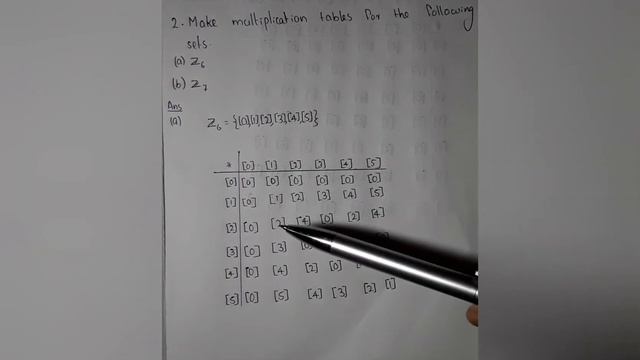 2. Make multiplication tables for the following
sets.
(a) Z6
(b) Z7
Ans
(a) Z6 = {[0],[1],[2],[3],[4],[5]}
* [0] [1] [2] [3] [4] [5]
[0] [0] [0] [0] [0] [0] [0]
[1] [0] [1] [2] [3] [4] [5]
[2] [0] [2] [4] [0] [2] [4]
[3] [0] [3]
[4] [0] [4] [2] [0]
[5] [0] [5] [4] [3] [2] [1]